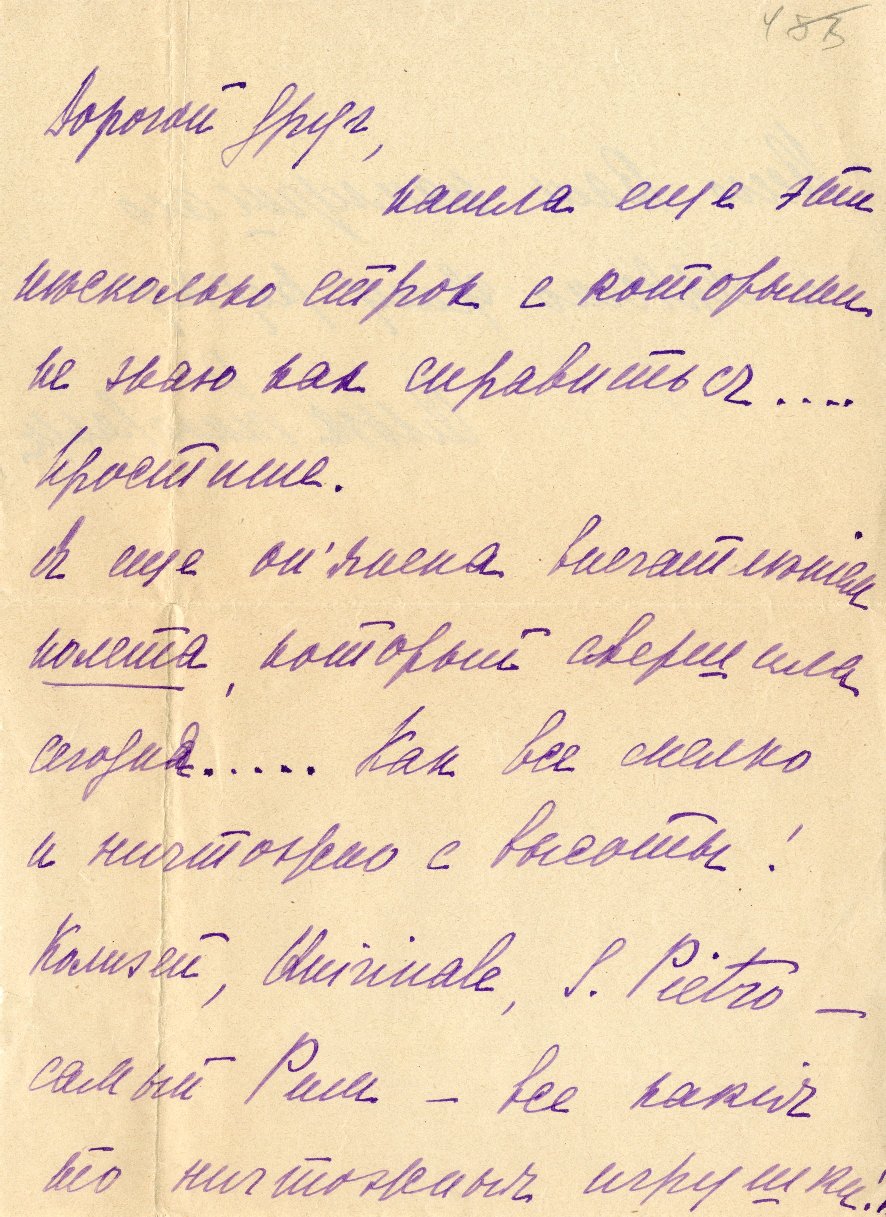 Дорогой друг,
нашла еще эти
нѣсколько строк с которыми
не знаю как справиться....
Простите.
Я еще оп'янена впечатлѣнiем
полета, который свершила
сегодня..... Как все мелко
и ничтожно с высоты!
Колизей, Quirinale, S. Pietro —
самый Рим — все какiя
то ничтожныя игрушки!